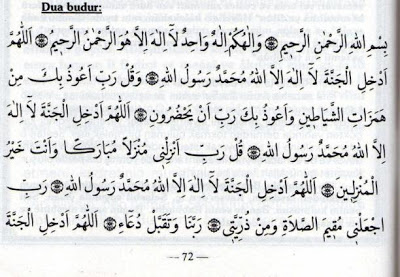 Dua budur:
بِسْمِ اللهِ الرَّحْمٰنِ الرَّحِيمِ ۞ وَاِلٰهُكُمْ اِلٰهٌ وَاحِدٌ لَآ اِلٰهَ اِلَّا هُوَ الرَّحْمٰنُ الرَّحِيمُ ۞ اَللّٰهُمَّ
اَدْخِلِ الْجَنَّةَ لَآ اِلٰهَ اِلَّا اللهُ مُحَمَّدٌ رَسُولُ اللهِ ۞ وَقُلْ رَبِّ اَعُوذُ بِكَ مِنْ
هَمَزَاتِ الشَّيَاطِينِ وَاَعُوذُ بِكَ رَبِّ اَنْ يَحْضُرُونِ ۞ اَللّٰهُمَّ اَدْخِلِ الْجَنَّةَ لَآ اِلٰهَ
اِلَّا اللهُ مُحَمَّدٌ رَسُولُ اللهِ ۞ قُلْ رَبِّ اَنْزِلْنِى مُنْزَلًا مُبَارَكًا وَاَنْتَ خَيْرُ
الْمُنْزِلِينَ ۞ اَللّٰهُمَّ اَدْخِلِ الْجَنَّةَ لَآ اِلٰهَ اِلَّا اللهُ مُحَمَّدٌ رَسُولُ اللهِ ۞ رَبِّ
اجْعَلْنِى مُقِيمَ الصَّلَاةِ وَمِنْ ذُرِّيَّتِى ۞ رَبَّنَا وَتَقَبَّلْ دُعَاءِ ۞ اَللّٰهُمَّ اَدْخِلِ الْجَنَّةَ
— 72 —